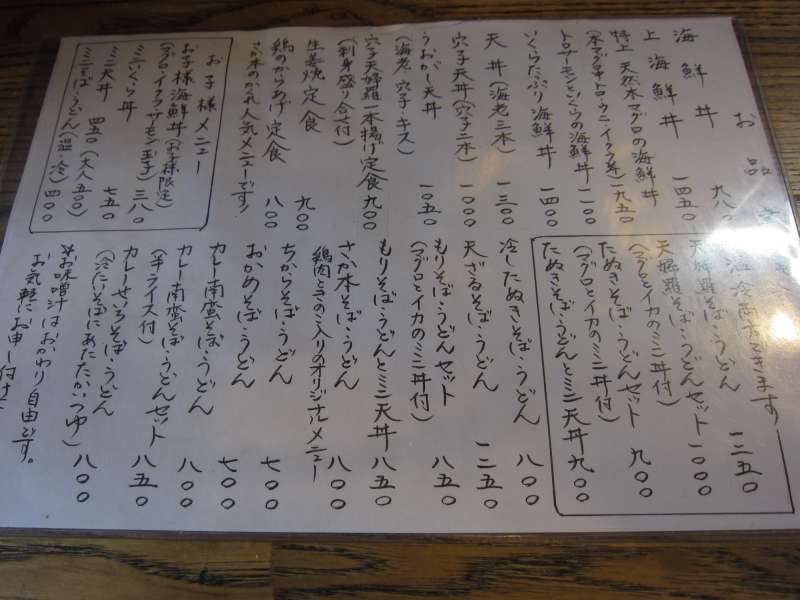 お品
海鮮丼 九八〇
上海鮮丼 一四五〇
特上天然本マグロの海鮮丼 一九五〇
(本マグロ中トロ・ウニ・イクラ等)
トロサーモンといくらの海鮮丼 一一〇〇
いくらたっぷり海鮮丼 一四〇〇
天丼(海老三本) 一三〇〇
穴子天丼(穴子二本) 一〇〇〇
うおがし天丼 一〇五〇
(海老・穴子・キス)
穴子天婦羅一本揚げ定食 九〇〇
(刺身盛り合せ付)
生姜焼定食 九〇〇
鶏のからあげ定食 八〇〇
さか本のかくれ人気メニューです!
お子様メニュー
お子様海鮮丼(お子様限定)
(マグロ・イクラ・サーモン・玉子)
ミニいくら丼 七五〇
ミニ天丼 四五〇(大人五〇〇)
ミニそば・うどん(温・冷) 四〇〇
温冷両方できます
天婦羅そば・うどん 一二五〇
天婦羅そば・うどんセット 一〇〇〇
(マグロとイカのミニ丼付)
たぬきそば・うどんセット 九〇〇
(マグロとイカのミニ丼付)
たぬきそば・うどんとミニ天丼 九〇〇
冷したぬきそば・うどん 八〇〇
天ざるそば・うどん 一二五〇
もりそば・うどんセット 八五〇
(マグロとイカのミニ丼付)
もりそば・うどんとミニ天丼 八五〇
さか本そば・うどん 八〇〇
鶏肉ときのこ入りのオリジナルメニュー
ちからそば・うどん 七〇〇
おかめそば・うどん 七〇〇
カレー南蛮そば・うどん 八〇〇
カレー南蛮そば・うどんセット 八五〇
(半ライス付)
カレーせいろそば・うどん 八〇〇
(冷たいそばにあたたかいつゆ)
※お味噌汁はおかわり自由です。
お気軽にお申し付け